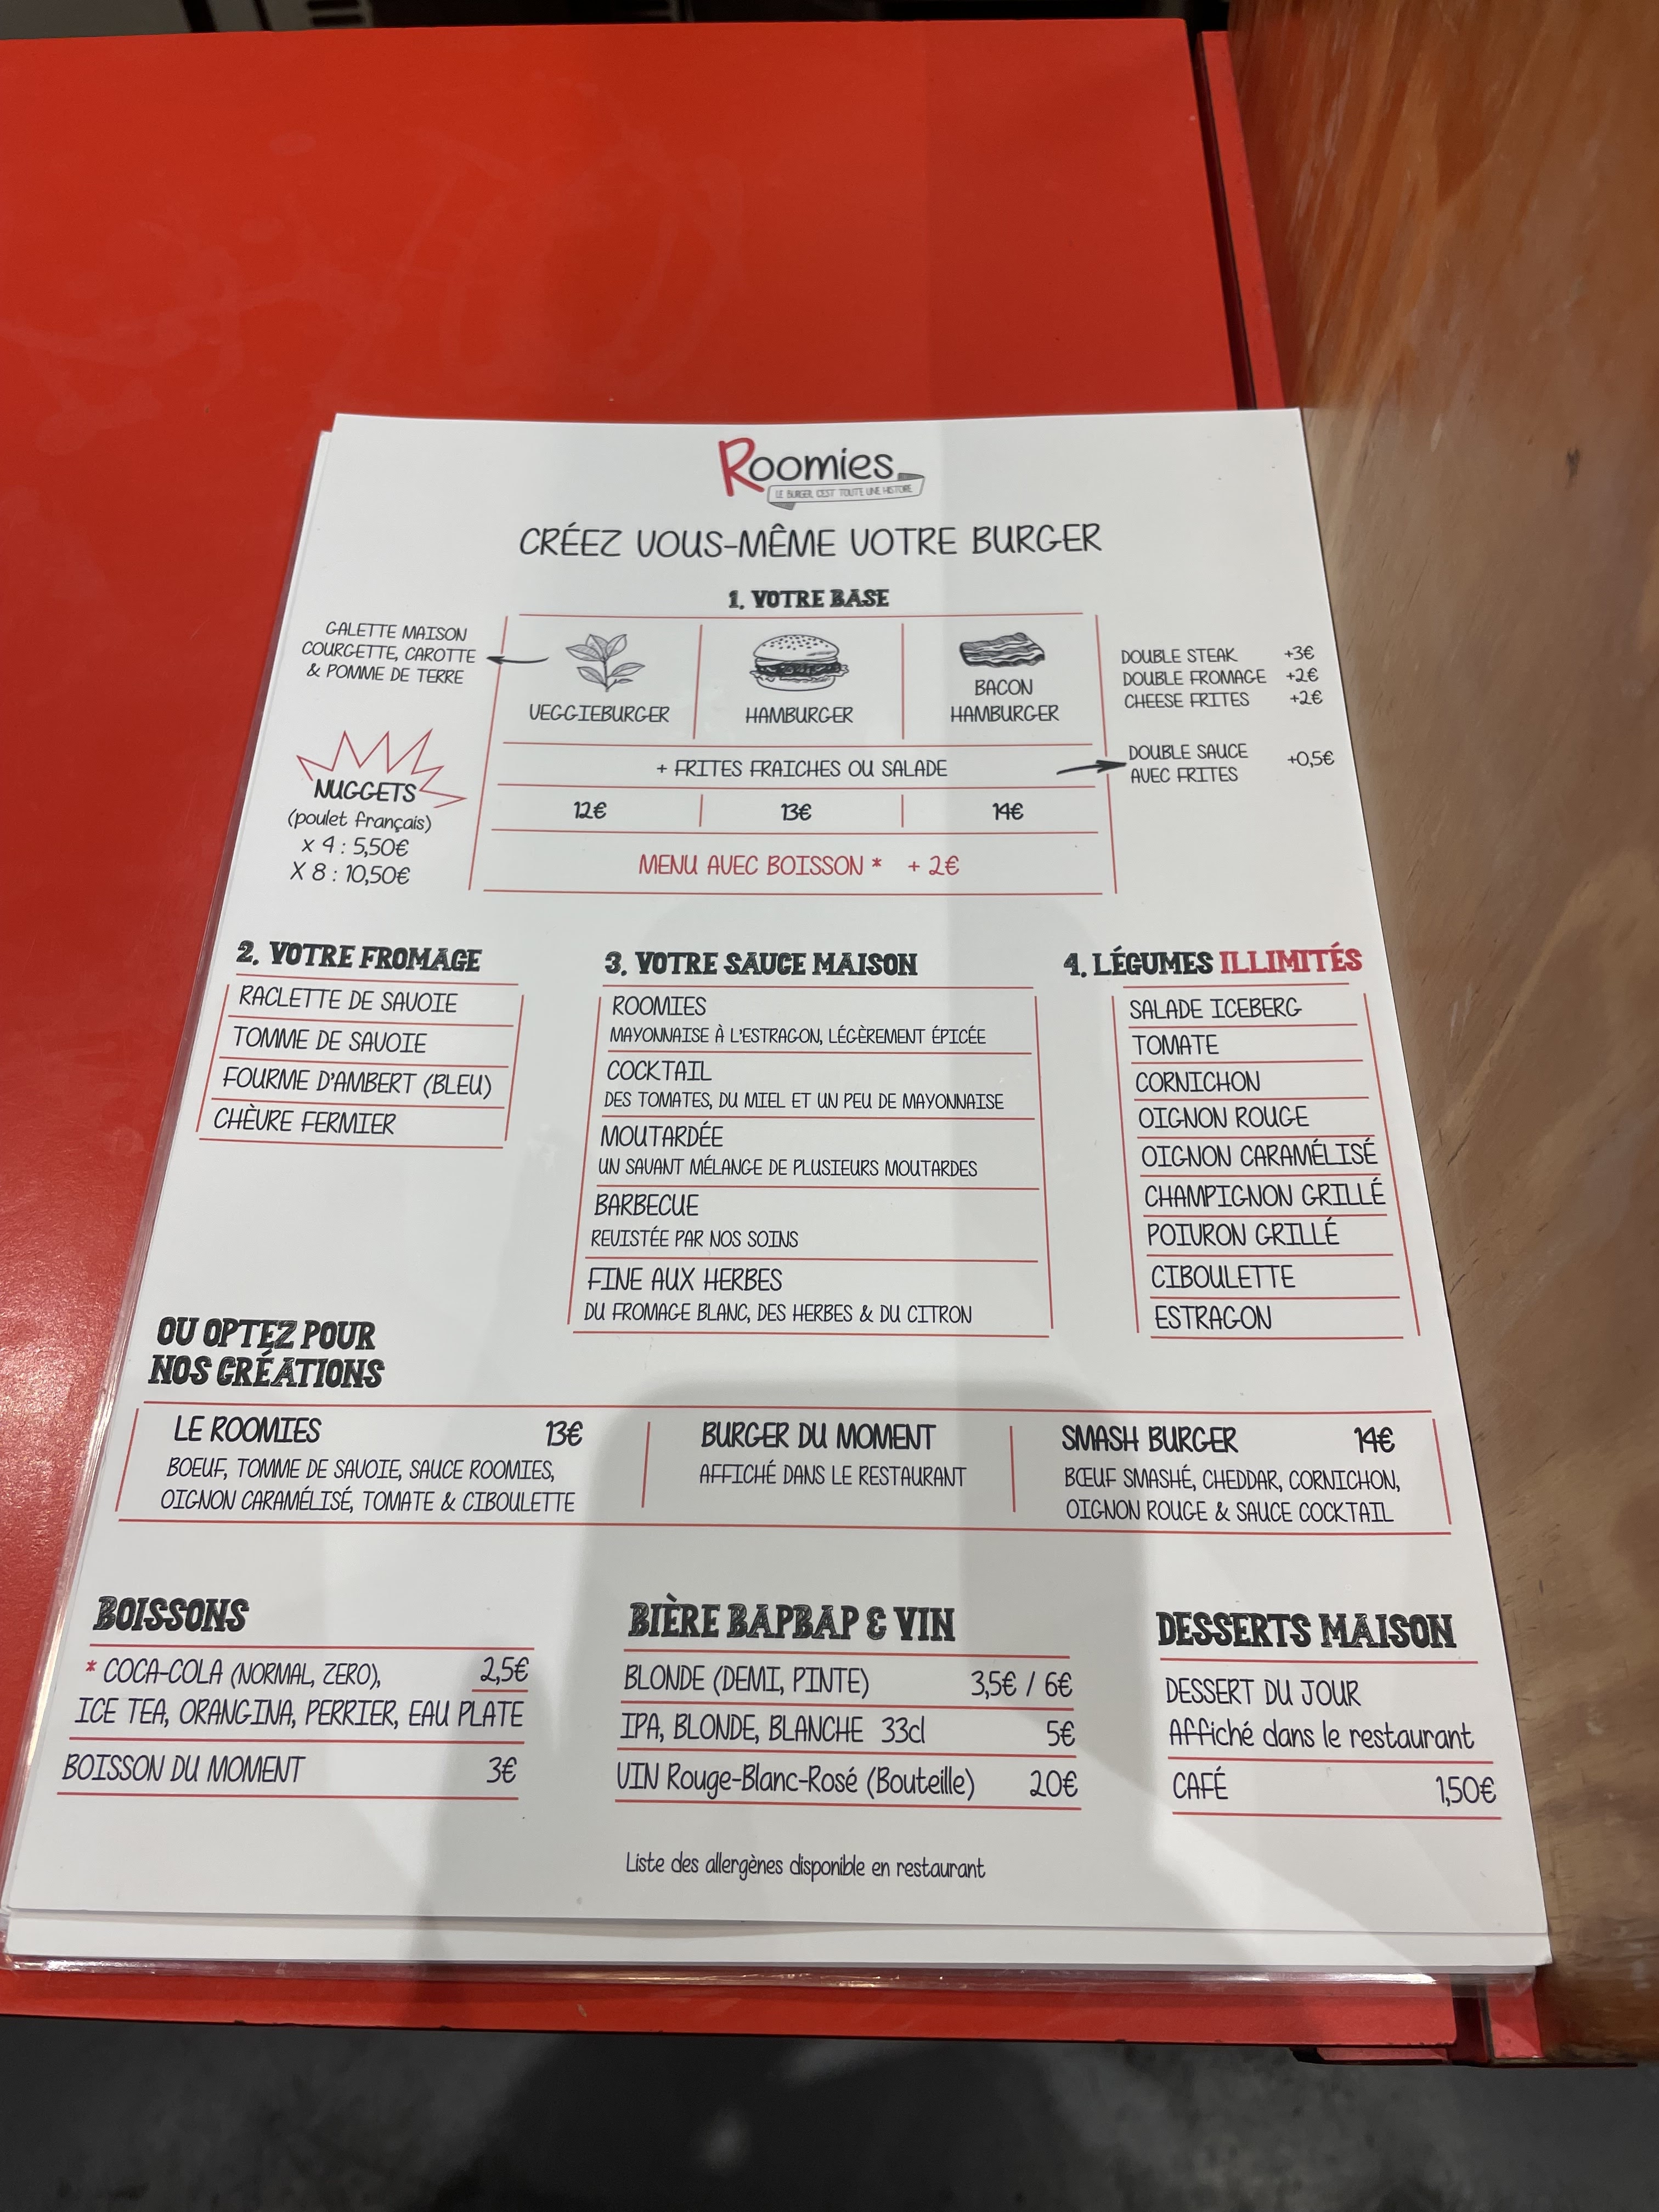 Roomies
LE BURGER, C'EST TOUTE UNE HISTOIRE
CRÉEZ VOUS-MÊME VOTRE BURGER
1. VOTRE BASE
GALETTE MAISON
COURGETTE, CAROTTE
& POMME DE TERRE
VEGGIEBURGER
HAMBURGER
BACON
HAMBURGER
DOUBLE STEAK +3€
DOUBLE FROMAGE +2€
CHEESE FRITES +2€
+ FRITES FRAICHES OU SALADE
DOUBLE SAUCE
AVEC FRITES +0,5€
12€ 13€ 14€
MENU AVEC BOISSON * + 2€
NUGGETS
(poulet français)
x 4 : 5,50€
X 8 : 10,50€
2. VOTRE FROMAGE
RACLETTE DE SAVOIE
TOMME DE SAVOIE
FOURME D'AMBERT (BLEU)
CHÈVRE FERMIER
3. VOTRE SAUCE MAISON
ROOMIES
MAYONNAISE À L'ESTRAGON, LÉGÈREMENT ÉPICÉE
COCKTAIL
DES TOMATES, DU MIEL ET UN PEU DE MAYONNAISE
MOUTARDÉE
UN SAVANT MÉLANGE DE PLUSIEURS MOUTARDES
BARBECUE
REVISTÉE PAR NOS SOINS
FINE AUX HERBES
DU FROMAGE BLANC, DES HERBES & DU CITRON
4. LÉGUMES ILLIMITÉS
SALADE ICEBERG
TOMATE
CORNICHON
OIGNON ROUGE
OIGNON CARAMÉLISÉ
CHAMPIGNON GRILLÉ
POIVRON GRILLÉ
CIBOULETTE
ESTRAGON
OU OPTEZ POUR
NOS CRÉATIONS
LE ROOMIES 13€
BOEUF, TOMME DE SAVOIE, SAUCE ROOMIES,
OIGNON CARAMÉLISÉ, TOMATE & CIBOULETTE
BURGER DU MOMENT
AFFICHÉ DANS LE RESTAURANT
SMASH BURGER 14€
BŒUF SMASHÉ, CHEDDAR, CORNICHON,
OIGNON ROUGE & SAUCE COCKTAIL
BOISSONS
* COCA-COLA (NORMAL, ZERO), 2,5€
ICE TEA, ORANGINA, PERRIER, EAU PLATE
BOISSON DU MOMENT 3€
BIÈRE BAPBAP & VIN
BLONDE (DEMI, PINTE) 3,5€ / 6€
IPA, BLONDE, BLANCHE 33cl 5€
VIN Rouge-Blanc-Rosé (Bouteille) 20€
DESSERTS MAISON
DESSERT DU JOUR
Affiché dans le restaurant
CAFÉ 1,50€
Liste des allergènes disponible en restaurant